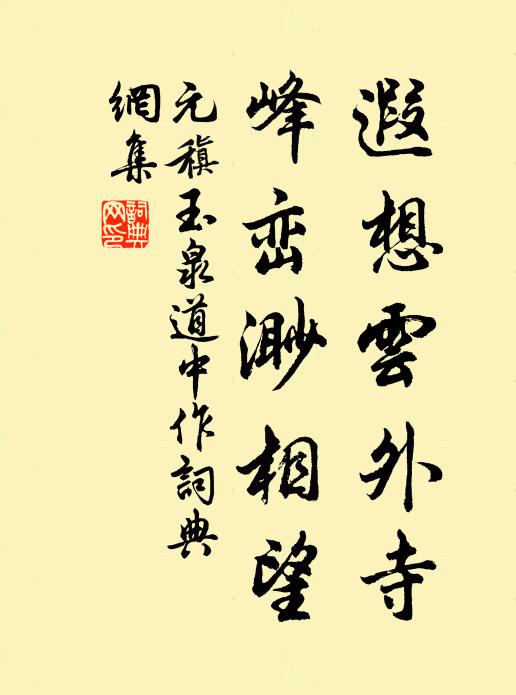 遐想雲外寺
峰峦渺相望
元稹玉泉道中作詞典
網集
詞典
网印